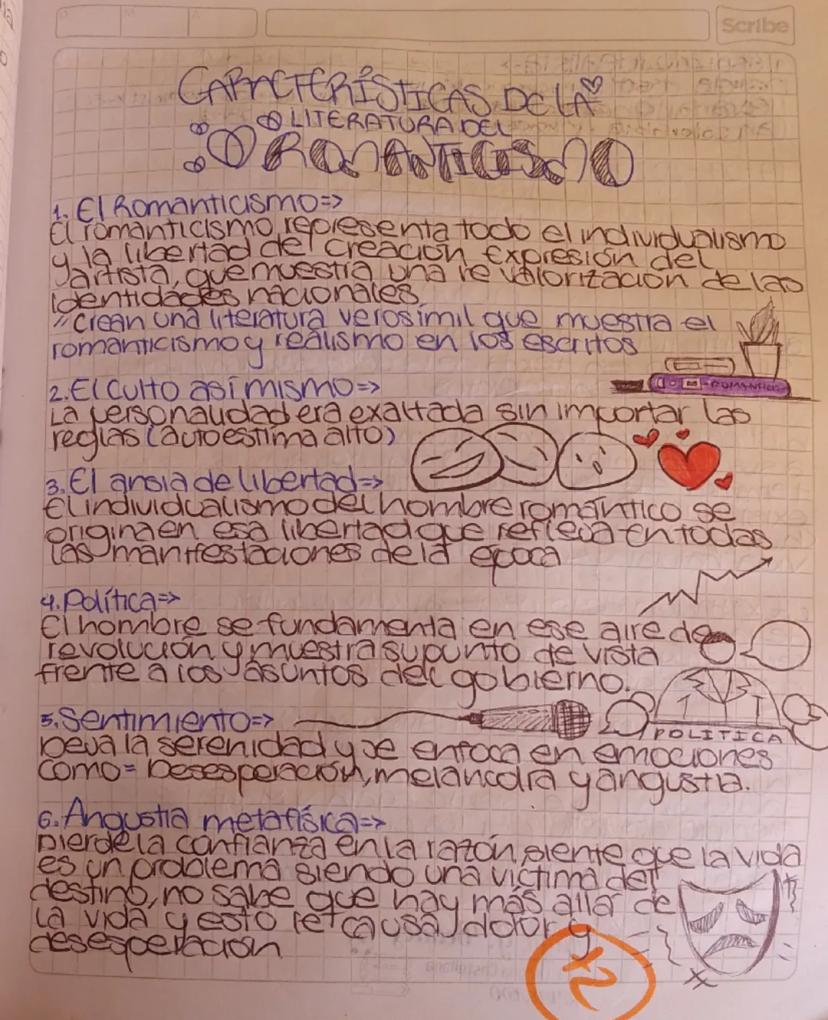 Scribe
CARACTERÍSTICAS DE LA
LITERATURA DEL
ROMANTICISMO
1. El Romanticismo=>
El romanticismo representa todo el individualismo
y la libertad del creación expresión del
artista, que muestra una revalorización de las
identidades nacionales.
"crean una literatura verosímil que muestra el
romanticismo y realismo en los escritos
ROMANTICIS
2. El culto así mismo=>
La personalidad era exaltada sin importar las
reglas (autoestima alto)
3. El ansia de libertad=>
El individualismo del hombre romántico se
origina en esa libertad que refleja en todas
las manifestaciones de la época
4. Política=>
El hombre se fundamenta en ese aire de
revolución y muestra su punto de vista
frente a los asuntos del gobierno.
POLITICA
5. Sentimiento=>
Deja la serenidad y se enfoca en emociones
como= Desesperación, melancolía y angustia.
6. Angustia metafísica=>
Pierde la confianza en la razón, siente que la vida
es un problema siendo una víctima del
destino, no sabe que hay más allá de
la vida y esto le causa dolor y
desesperación
+2